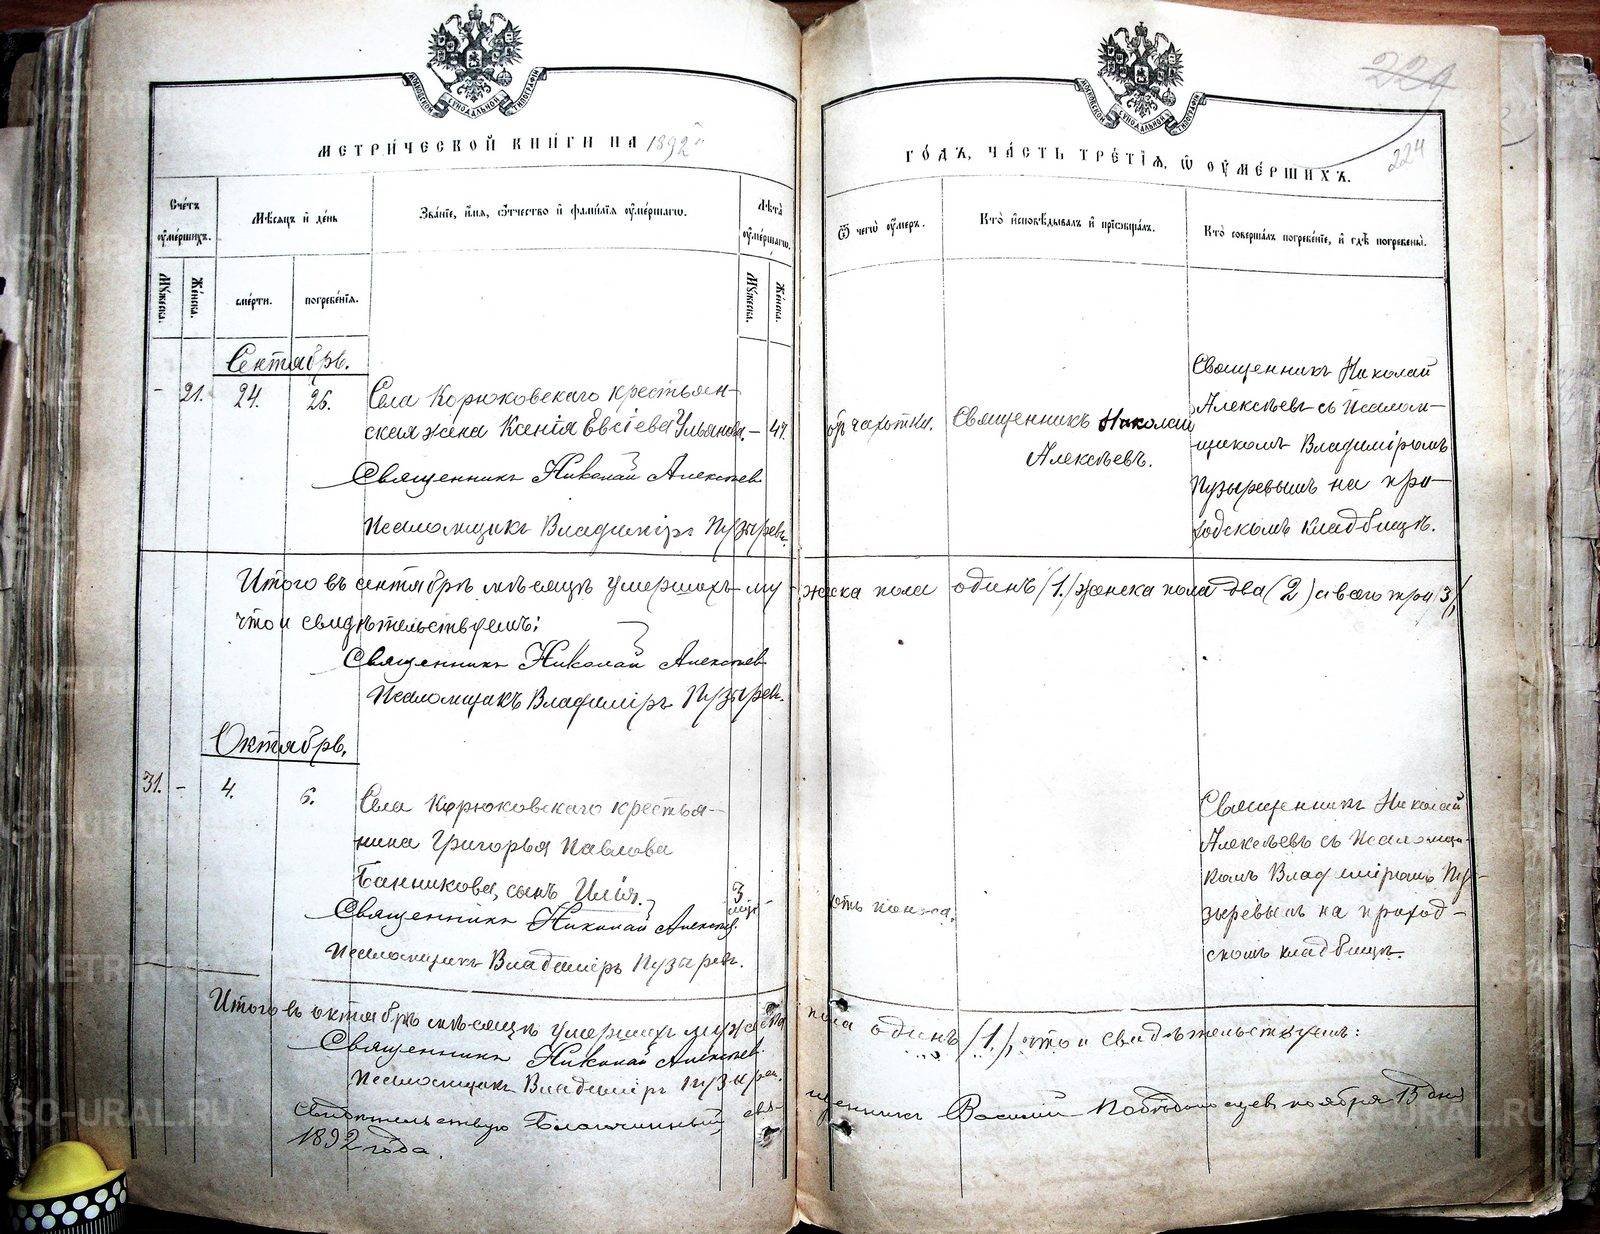 МЕТРИЧЕСКОЙ КНИГИ НА 1892й
ГОДЪ, ЧАСТЬ ТРЕТІЯ, Ѿ ОУМЕРШИХЪ.
229
224
Счетъ оумершихъ.
Мѣсяцъ и день
Званіе, имя, отчество и фамилія оумершагω.
Лѣта оумершагω.
Мужеска.
Женска.
смерти.
погребенія.
Мужеска.
Женска.
Ѿ чегω оумеръ.
Кто исповѣдывалъ и пріобщалъ.
Кто совершалъ погребеніе, и гдѣ погребены.
Сентябрь.
- 21. 24. 26.
Села Корюковскаго крестьян-
ская жена Ксенія Евсіева Ульянова. - 47.
Священникъ Николай Алексѣев
Псаломщикъ Владиміръ Пузыревъ.
отъ чахотки.
Священникъ Николай
Алексѣевъ.
Священникъ Николай
Алексѣевъ съ Псалом-
щикомъ Владиміромъ
Пузыревымъ на при-
ходскомъ кладбищѣ.
Итого въ сентябрѣ мѣсяцѣ умершихъ му-жеска пола одинъ (1.) женска пола два (2) а всего три (3),
что и свидѣтельствуемъ:
Священникъ Николай Алексѣев
Псаломщикъ Владиміръ Пузырев.
Октябрь.
31. - 4. 6.
Села Корюковскаго крестья-
нина Григорья Павлова
Банникова, сынъ Илія.
3 мѣс. -
Священникъ Николай Алексѣев.
Псаломщикъ Владиміръ Пузырев.
отъ поноса.
Священникъ Николай
Алексѣевъ съ Псаломщи-
комъ Владиміромъ Пу-
зыревымъ на приход-
скомъ кладбищѣ.
Итого въ октябрѣ мѣсяцѣ умершихъ мужеска пола одинъ (1.), что и свидѣтельствуемъ:
Священникъ Николай Алексѣев.
Псаломщикъ Владиміръ Пузырев.
Свидѣтельствую Благочинный, свя-щенникъ Василій Победоносцев ноября 15 дня
1892 года.